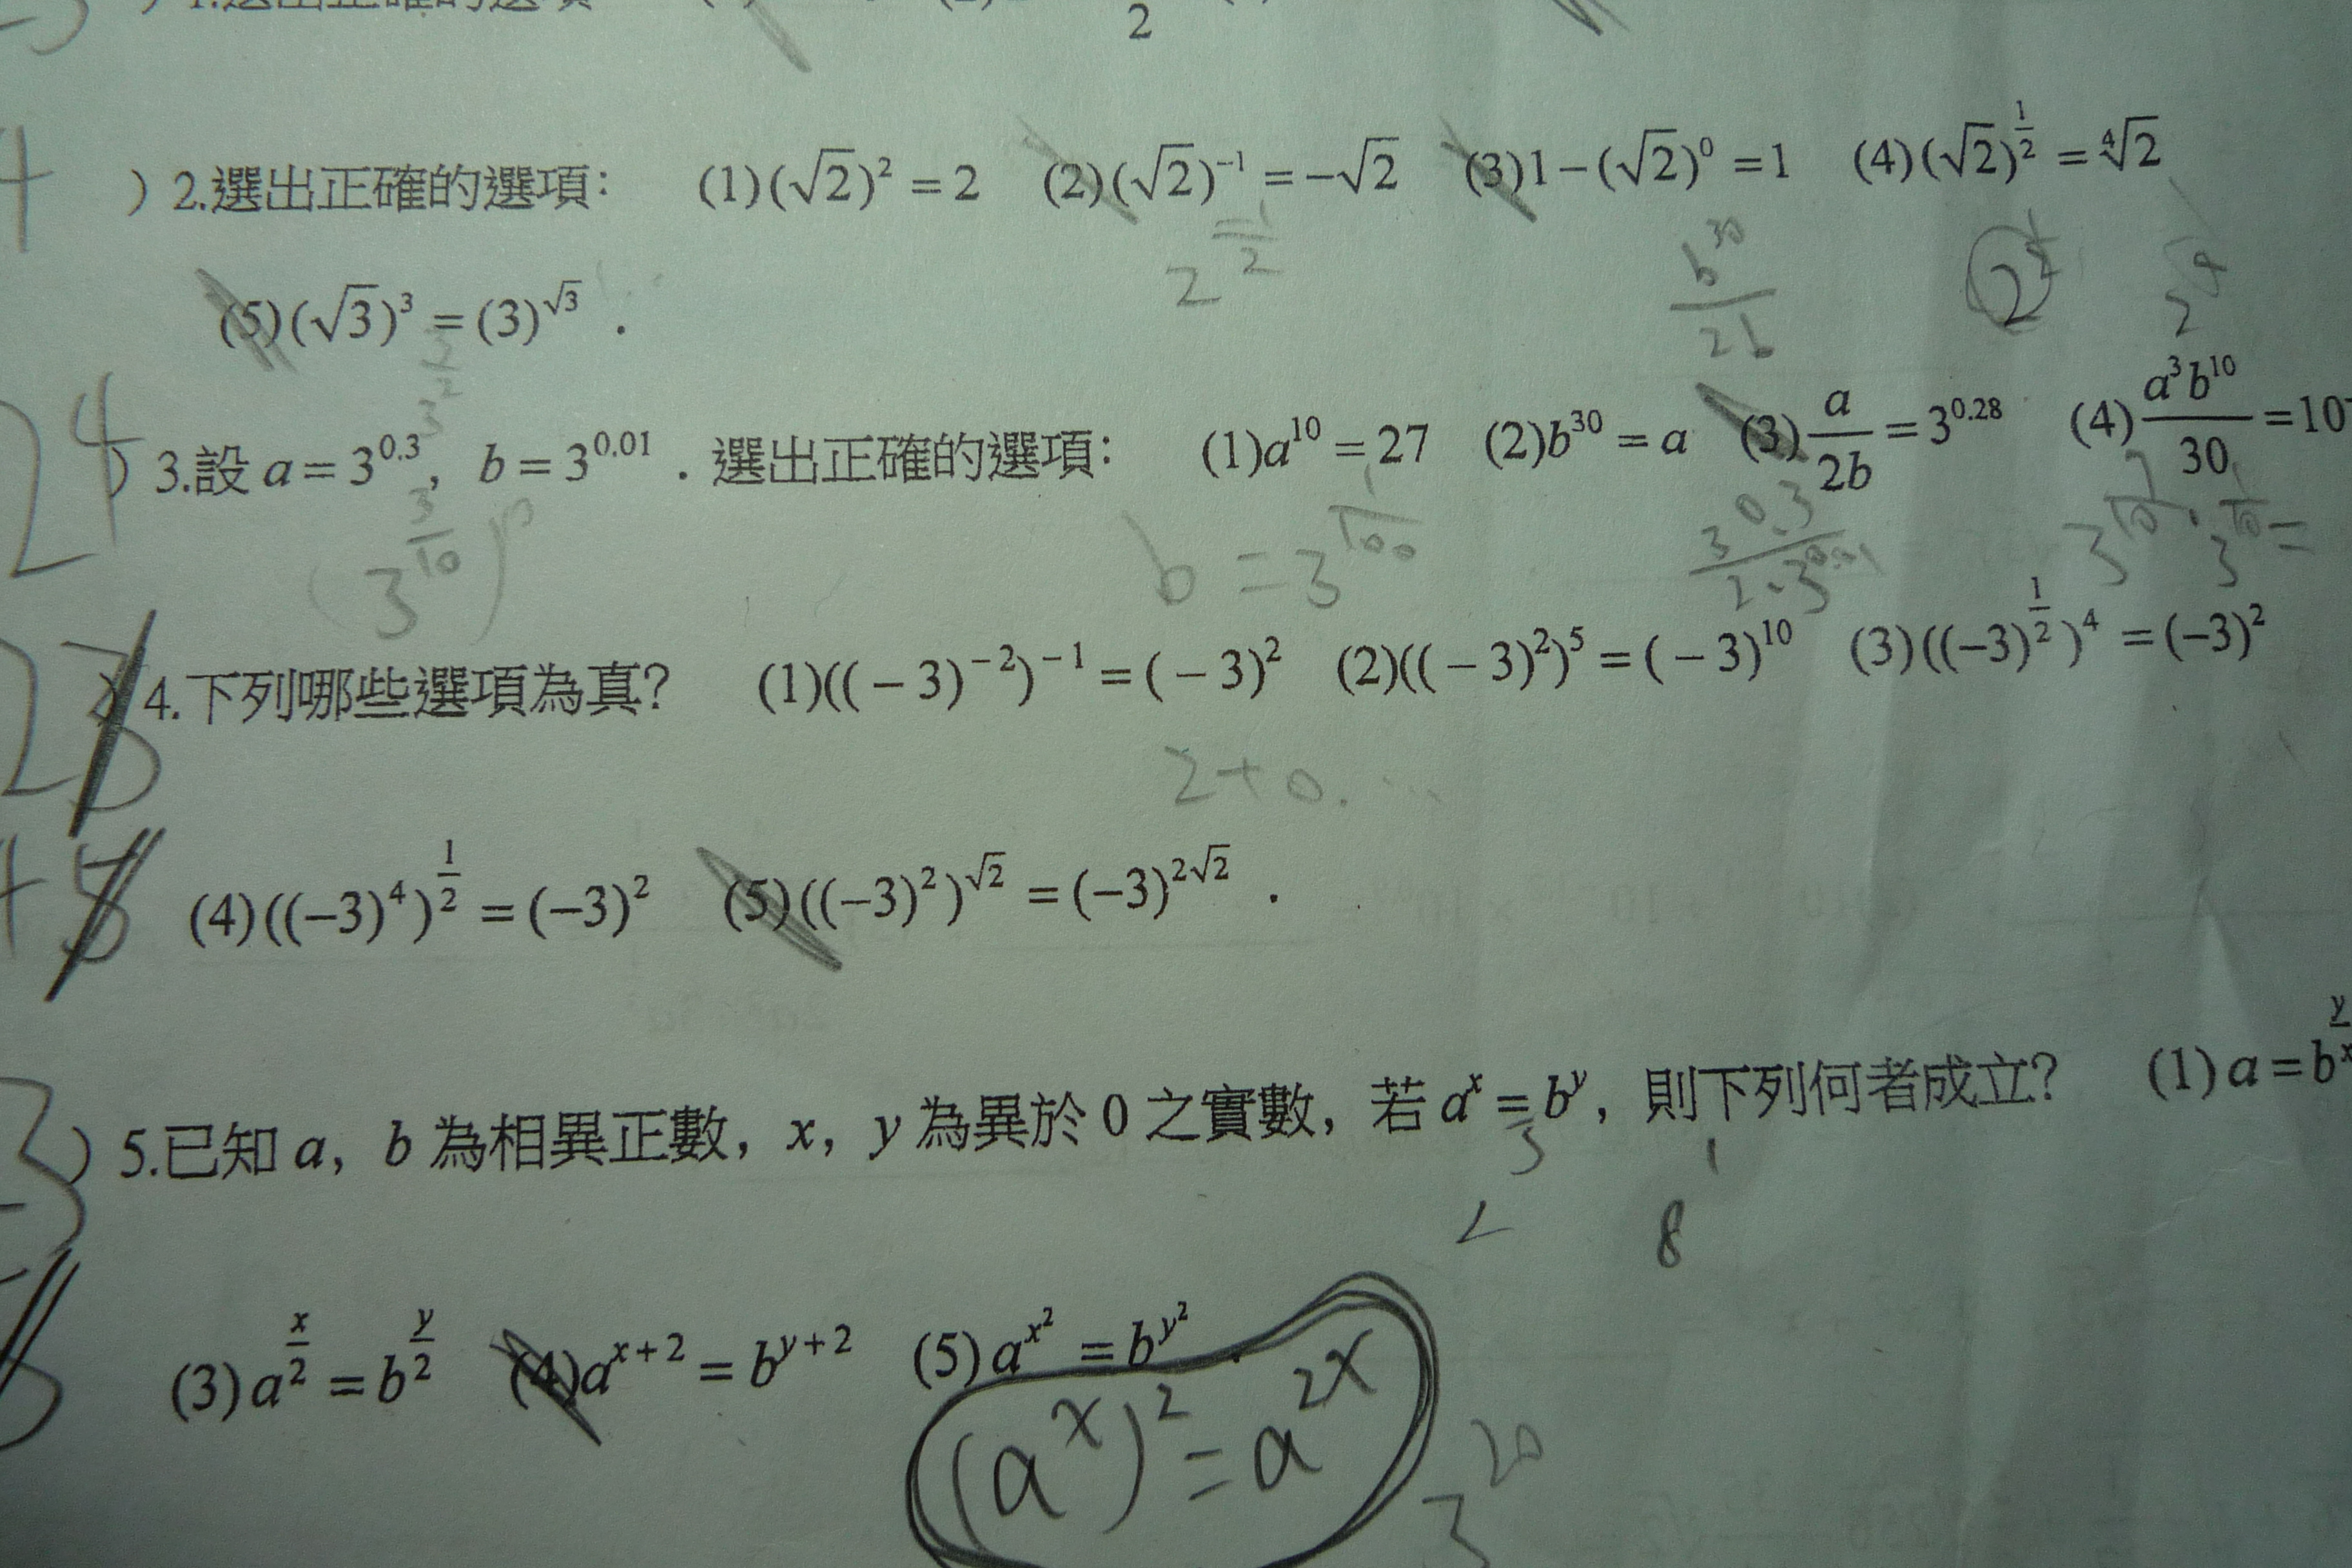 2
) 2.選出正確的選項： (1)(√2)² = 2 (2)(√2)⁻¹ = −√2 (3)1−(√2)⁰ = 1 (4)(√2)^(1/2) = ⁴√2
(5)(√3)³ = (3)^√3 .
2^(-1/2) b³⁰/2b 2^(1/4)
24
) 3.設 a = 3^0.3，b = 3^0.01．選出正確的選項： (1)a¹⁰ = 27 (2)b³⁰ = a (3) a/2b = 3^0.28 (4) a³b¹⁰/30 = 10
(3^(3/10)) b = 3^(1/100) 3^0.3/2·3^0.01
4.下列哪些選項為真? (1)((−3)⁻²)⁻¹ = (−3)² (2)((−3)²)⁵ = (−3)¹⁰ (3)((−3)^(1/2))⁴ = (−3)²
2+0....
(4)((−3)⁴)^(1/2) = (−3)² (5)((−3)²)^√2 = (−3)^(2√2) .
) 5.已知 a，b 為相異正數，x，y 為異於 0 之實數，若 a^x = b^y，則下列何者成立? (1) a = b^(y/x)
8
(3) a^(x/2) = b^(y/2) (4)a^(x+2) = b^(y+2) (5) a^(x²) = b^(y²) .
(a^x)² = a^(2x)
3²⁰